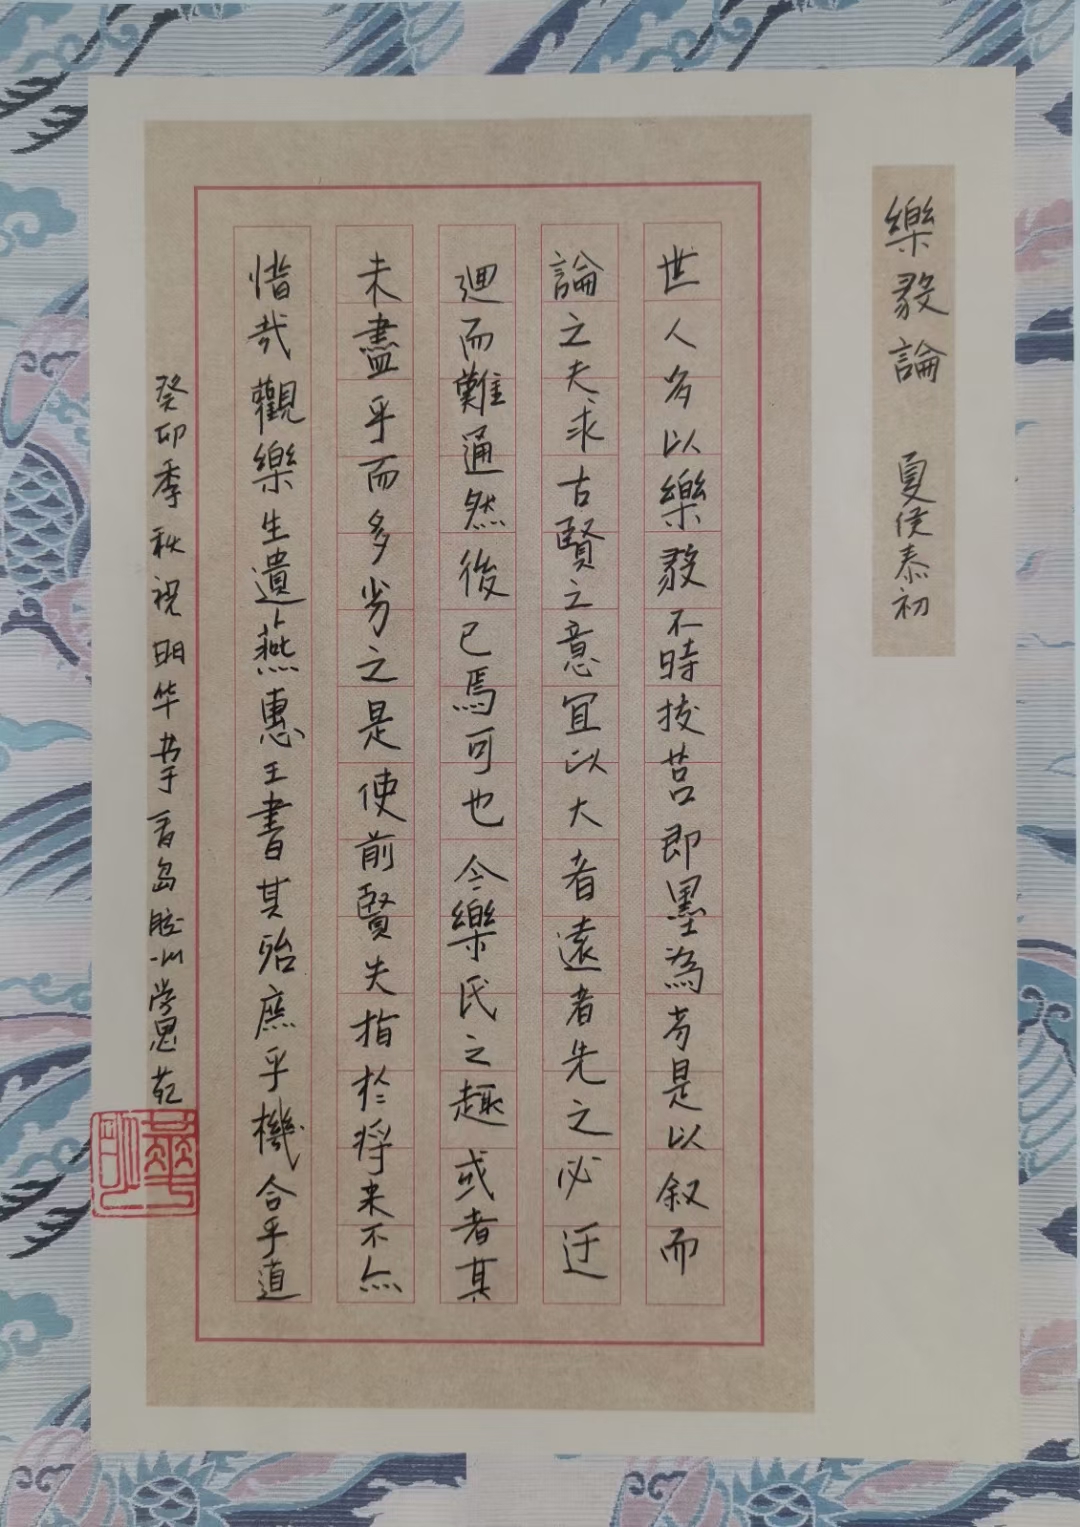 樂毅論 夏侯泰初
世人多以樂毅不時拔莒即墨為劣是以叙而
論之夫求古賢之意宜以大者遠者先之必迂
迴而難通然後已焉可也今樂氏之趣或者其
未盡乎而多劣之是使前賢失指於将来不亦
惜哉觀樂生遺燕惠王書其殆庶乎機合乎道
癸卯季秋祝明华书于青岛胶州學思苑
明華